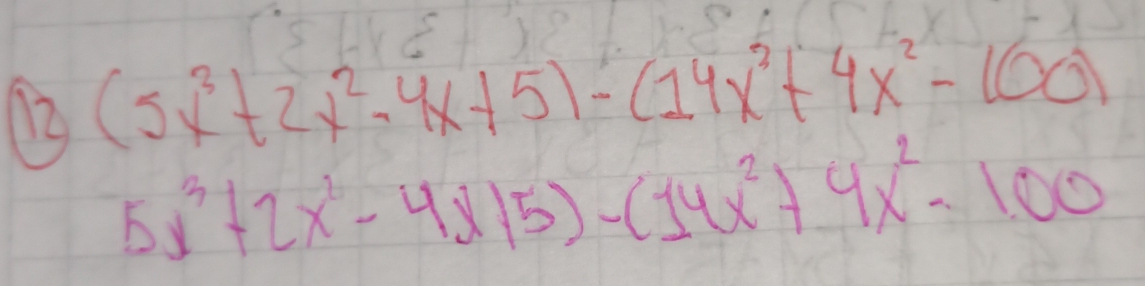 ⑫ (5x³+2x²-4x+5)-(14x³+4x²-100)
5x³+2x²-4x+5)-(14x²+4x²-100